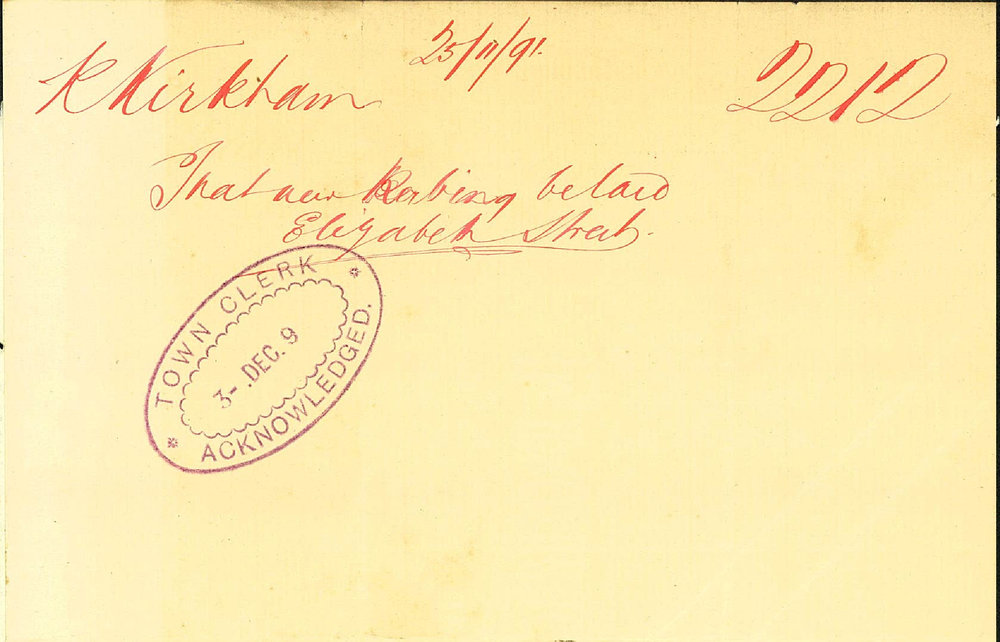 25/11/91.
R Kirkham
2212
That new Kerbing be laid
Elizabeth Street.
TOWN CLERK
3- .DEC. 9
ACKNOWLEDGED.